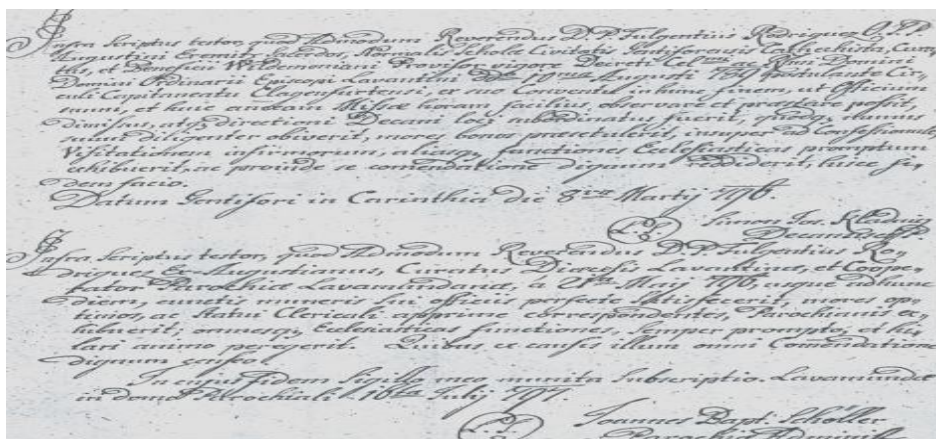 Infra Scriptus testor, quod Admodum Reverendus D. P. Fulgentius Rodriquez O. S. P.
Augustini Normalis Scholæ Civitatis Gentiforensis Cathechista, Cura-
tus, et Provisor vigore Decreti ac Domini
Domini Ordinarii Episcopi Lavantini Augusti postulante Cir-
culi Capitaneatu Clagenfurtensi, ex suo Conventu in hunc finem, ut Officium
suum, et huic annexam Missæ horam facilius observare et præstare possit,
dimissus, atq; directioni Decani loci subordinatus fuerit, quodq; munus
suum diligenter obiverit, mores bonos præsetulerit, insuper ad Confessionale,
Visitationem infirmorum, aliasq; functiones Ecclesiasticas promptum
exhibuerit, ac proinde se comendatione dignum reddiderit, hisce fi-
dem facio.
Datum Gentifori in Carinthia die 8va Martij 796.
Simon Jos.
L. S.
Infra Scriptus testor, quod Admodum Reverendus D. P. Fulgentius Ro-
driquez Ex Augustianus, Curatus Diœcesis Lavantinæ, et Coope-
rator Parochiæ Lavamundanæ, a Maij 796, usque ad hunc
diem, cunctis muneris sui officiis perfecte satisfecerit, mores op-
timos, ac statui Clericali apprime correspondentes, Parochianis ex-
hibuerit, omnesq; Ecclesiasticas functiones, semper prompto, et hi-
lari animo peregerit. Quibus ex causis illum omni Comendatione
dignum censeo.
In cujus fidem Sigillo meo munita Subscriptio. Lavamundæ
in domo Parochiali 16ta Julij 797.
Joannes Bapt. Schöller
L. S.